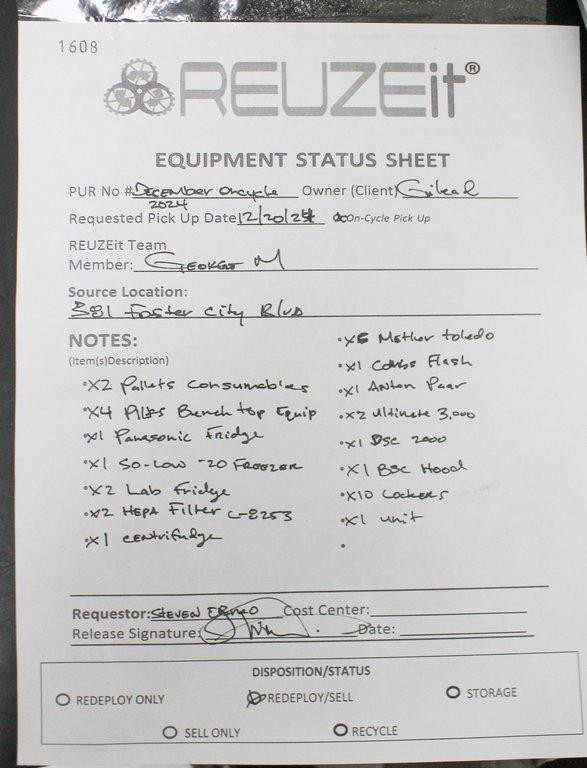 1608
REUZEit®
EQUIPMENT STATUS SHEET
PUR No # December Oncycle Owner (Client) Gilead
2024
Requested Pick Up Date 12/20/24 On-Cycle Pick Up
REUZEit Team
Member: George M
Source Location:
381 Foster City Blvd
NOTES:
(Item(s)Description)
•X2 Pallets Consumables
•X4 Pllts Bench top Equip
•X1 Panasonic Fridge
•X1 So-Low -20 Freezer
•X2 Lab Fridge
•X2 HEPA Filter C-8253
•X1 Centrifudge
•X5 Mether toledo
•X1 Combi Flash
•X1 Anton Paar
•X2 Ultimate 3,000
•X1 DSC 2000
•X1 BSC Hood
•X10 Lockers
•X1 unit
•
Requestor: Steven Cost Center:
Release Signature: Date:
DISPOSITION/STATUS
REDEPLOY ONLY REDEPLOY/SELL STORAGE
SELL ONLY RECYCLE